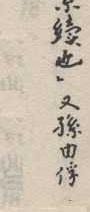 續也」又孫由俘